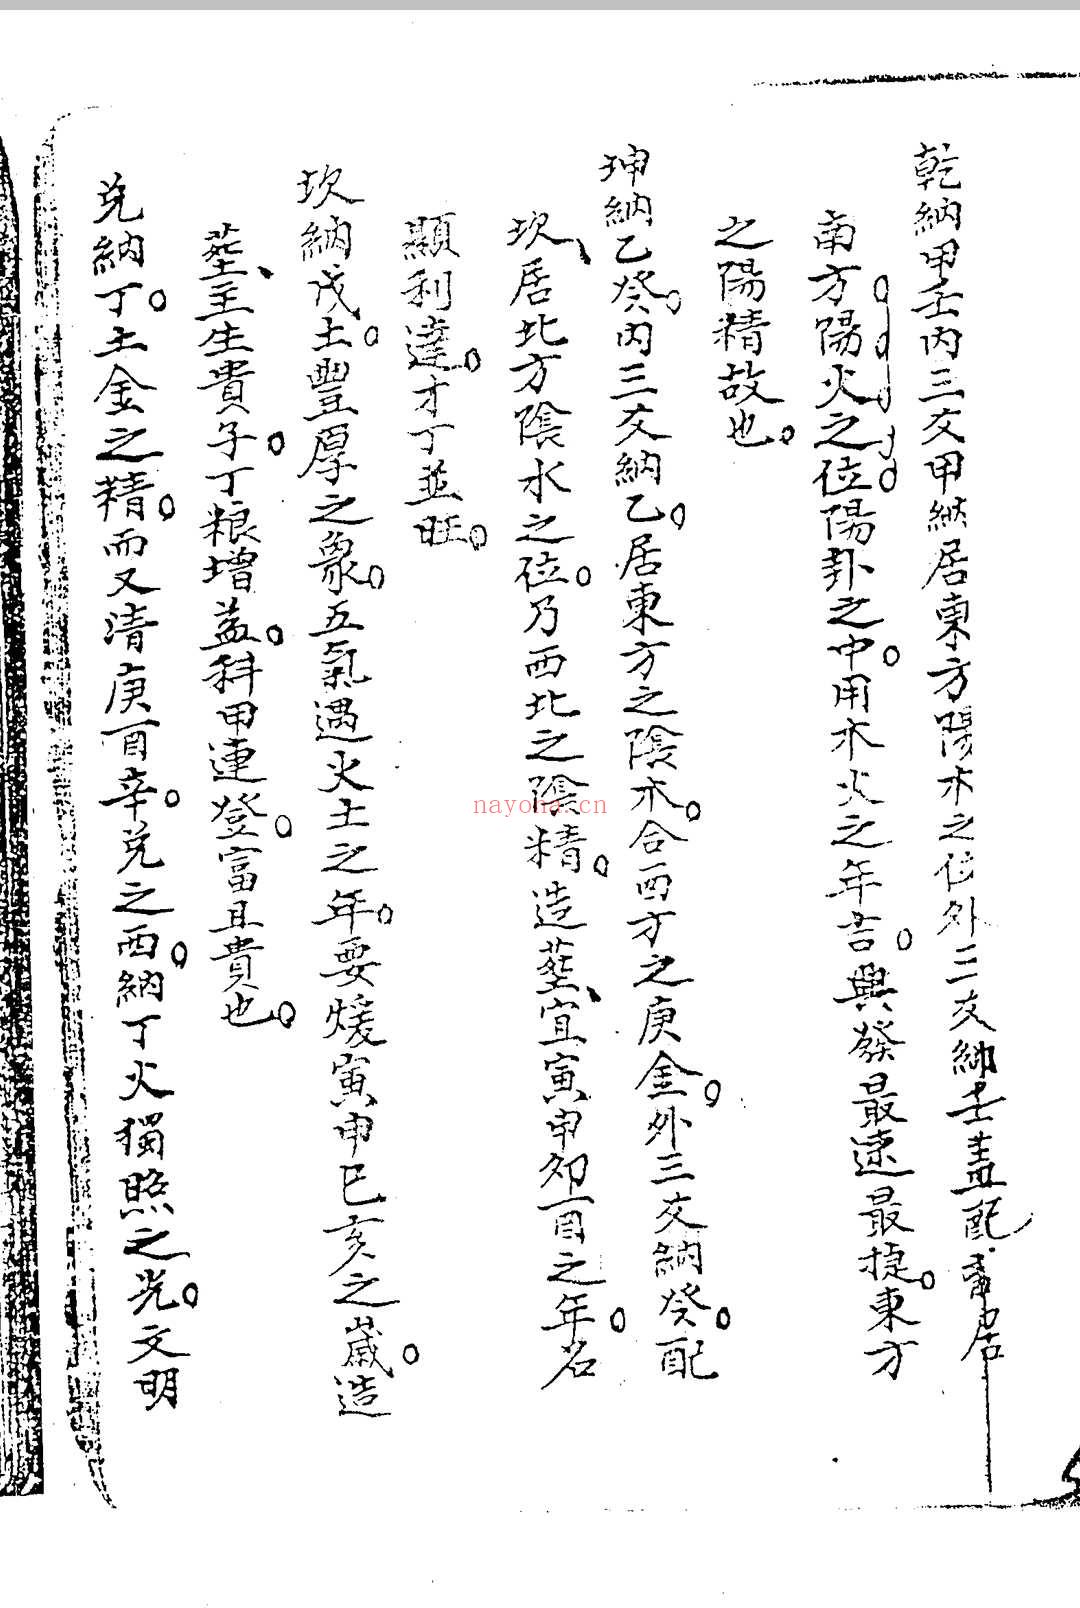 乾納甲壬内三爻甲納居東方陽木之位外三爻納壬蓋配离居
南方陽火之位陽卦之中用木火之年吉興發最速最捷東方
之陽精故也
坤納乙癸内三爻納乙居東方之陰木合西方之庚金外三爻納癸配
坎居北方陰水之位乃西北之陰精造塟宜寅申夘酉之年名
顯利達才丁並旺
坎納戊土豐厚之象五氣遇火土之年要煖寅申巳亥之歲造
塟主生貴子丁粮增益科甲連登富且貴也
兌納丁土金之精而又清庚酉辛兌之西納丁火獨照之光文明
nayona.cn